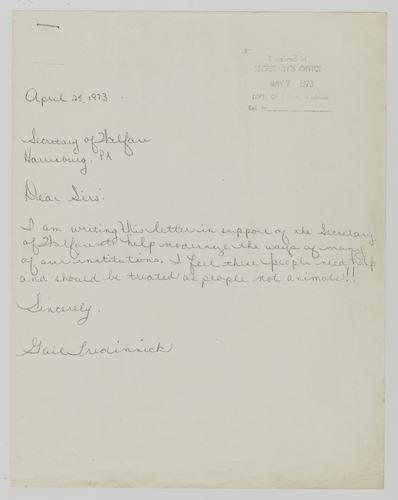 Received in
SECRETARY'S OFFICE
MAY 7 1973
DEPT. OF PUBLIC WELFARE
Ref. to
April 25, 1973
Secretary of Welfare
Harrisburg, PA
Dear Sirs:
I am writing this letter in support of the Secretary
of Welfare to help modernize the ways of many
of our institutions. I feel these people need help
and should be treated as people not animals!!
Sincerely,
Gail Tredinnick